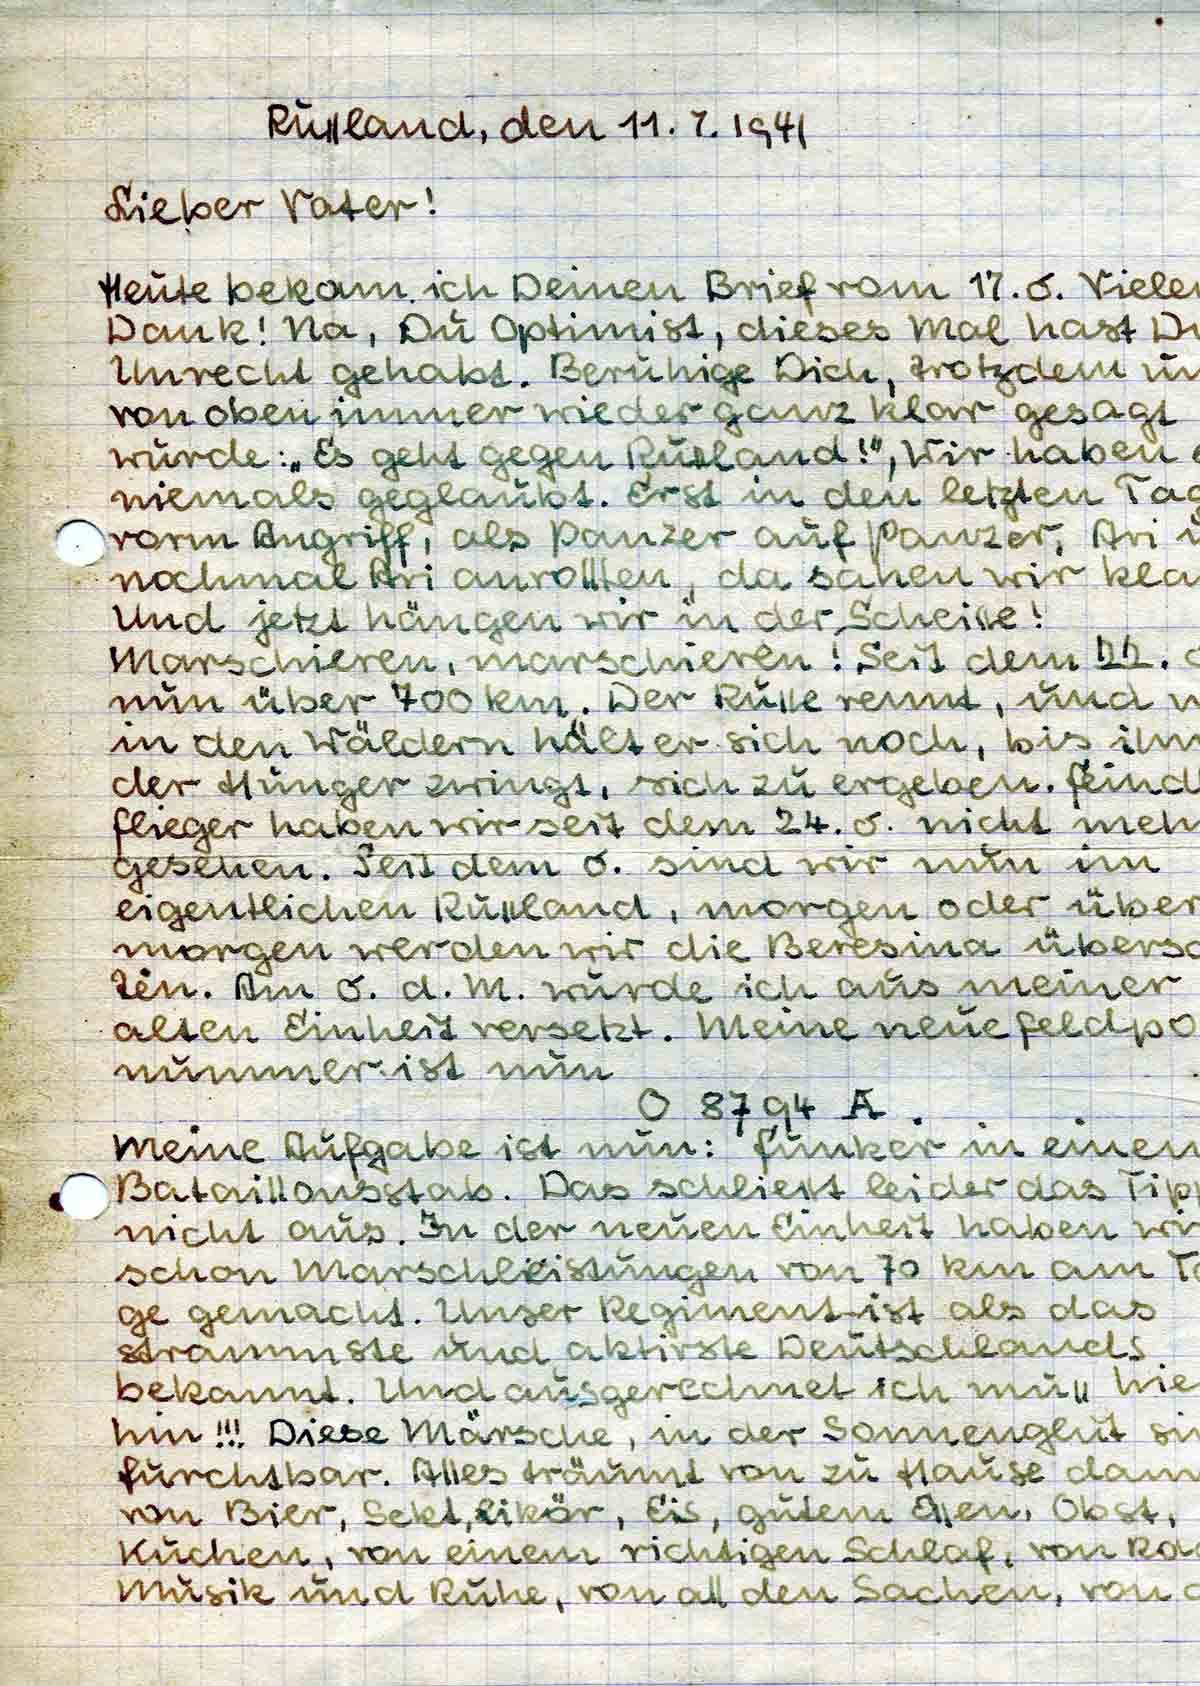 Rußland, den 11.7.1941
Lieber Vater!
Heute bekam ich Deinen Brief vom 17.6. Vielen
Dank! Na, Du Optimist, dieses Mal hast Du
Unrecht gehabt. Beruhige Dich, trotzdem un
von oben immer wieder ganz klar gesagt
wurde: „Es geht gegen Rußland!", Wir haben e
niemals geglaubt. Erst in den letzten Tag
vorm Angriff, als Panzer auf Panzer, Ari u
nochmal Ari anrollten, da sahen wir kla
Und jetzt hängen wir in der Scheiße!
Marschieren, marschieren! Seit dem 22. 6
nun über 700 km. Der Ruße rennt, und n
in den Wäldern hält er sich noch, bis ihn
der Hunger zwingt, sich zu ergeben. Feind
flieger haben wir seit dem 24.6. nicht meh
gesehen. Seit dem 6. sind wir nun im
eigentlichen Rußland, morgen oder über
morgen werden wir die Beresina übersc
ten. Am 6. d. M. wurde ich aus meiner
alten Einheit versetzt. Meine neue Feldpo
nummer ist nun
O 8794 A.
Meine Aufgabe ist nun: Funker in einem
Bataillonsstab. Das schließt leider das Tipp
nicht aus. In der neuen Einheit haben wir
schon Marschleistungen von 70 km am Ta
ge gemacht. Unser Regiment ist als das
strammste und aktivste Deutschlands
bekannt. Und ausgerechnet ich muß hie
hin!!! Diese Märsche, in der Sonnenglut sin
furchtbar. Alles träumt von zu Hause dann
von Bier, Sekt, Likör, Eis, gutem Eßen, Obst,
Kuchen, von einem richtigen Schlaf, von Ra
Musik und Ruhe, von all den Sachen, von d